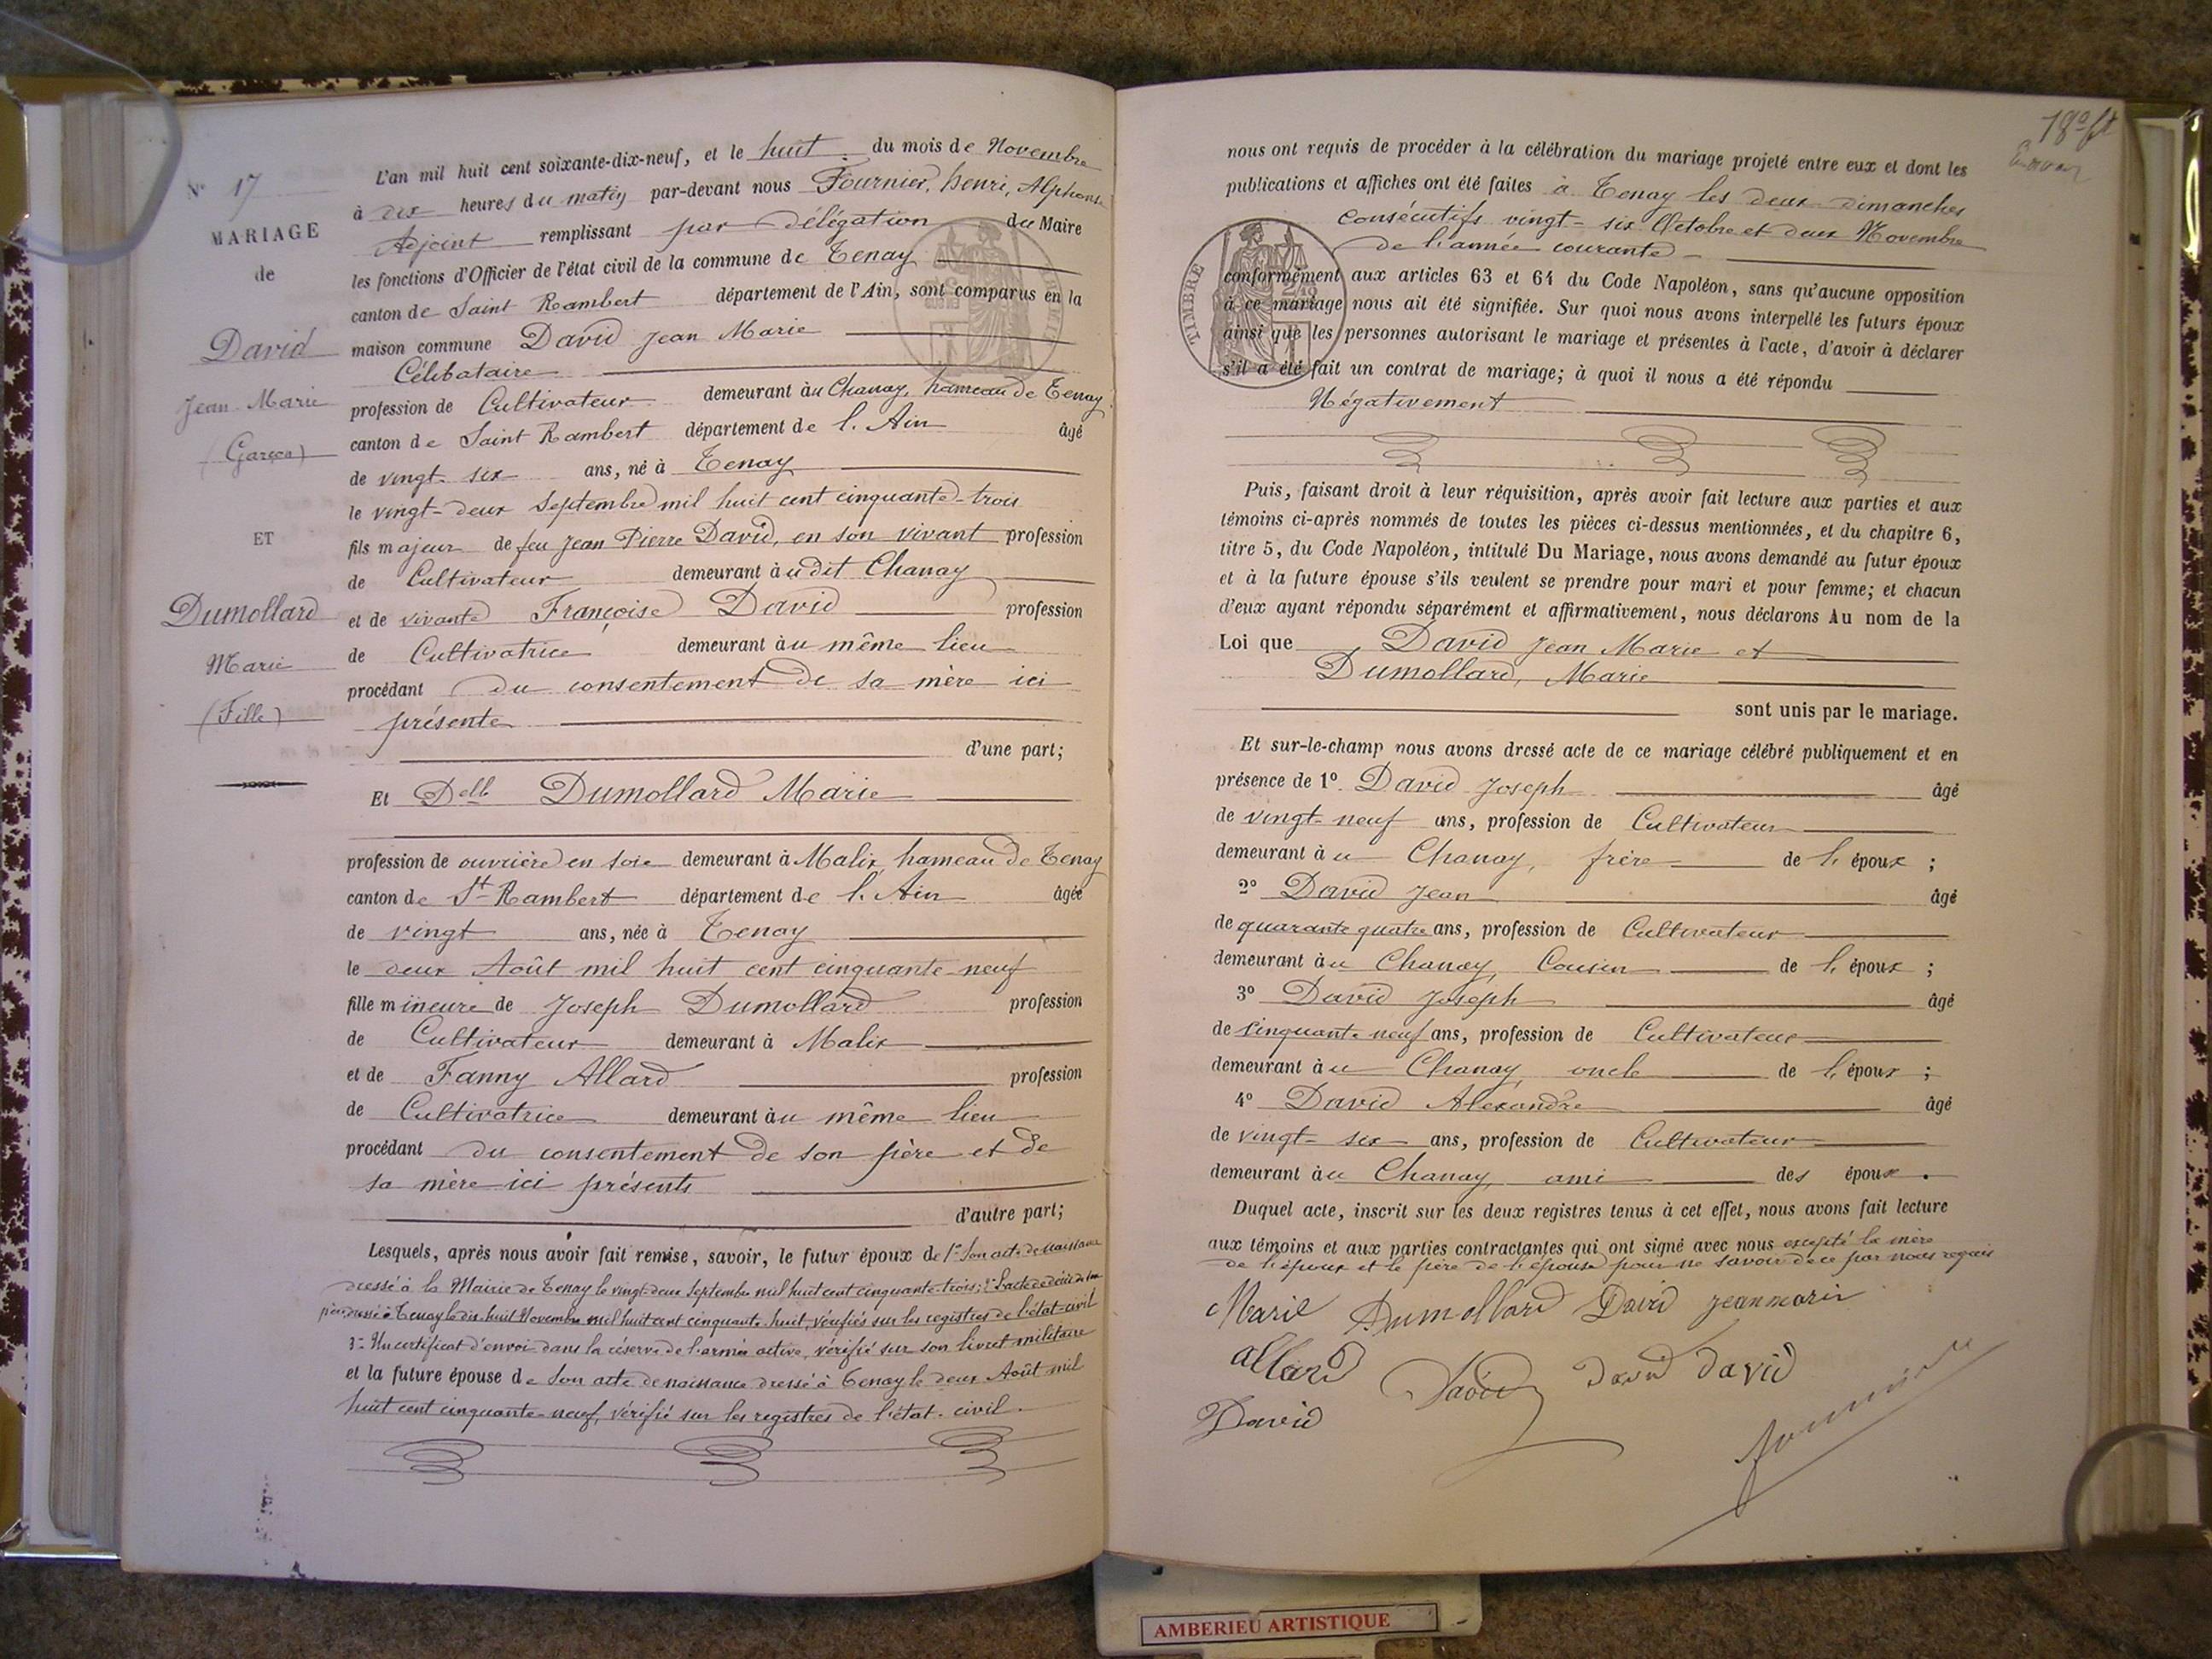 N° 17
MARIAGE
de
David
Jean Marie
(Garçon)
ET
Dumollard
Marie
(Fille)
L'an mil huit cent soixante-dix-neuf, et le huit du mois de Novembre
à dix heures du matin par-devant nous Fournier, Henri, Alphonse
Adjoint remplissant par délégation du Maire
les fonctions d'Officier de l'état civil de la commune de Tenay
canton de Saint Rambert département de l'Ain, sont comparus en la
maison commune David Jean Marie
Célibataire
profession de Cultivateur demeurant au Chanay, hameau de Tenay
canton de Saint Rambert département de l'Ain âgé
de vingt-six ans, né à Tenay
le vingt-deux Septembre mil huit cent cinquante-trois
fils majeur de feu Jean Pierre David, en son vivant profession
de Cultivateur demeurant audit Chanay
et de vivante Françoise David profession
de Cultivatrice demeurant au même lieu
procédant du consentement de sa mère ici
présente
d'une part;
Et Delle Dumollard Marie
profession de ouvrière en soie demeurant à Malix, hameau de Tenay
canton de St Rambert département de l'Ain âgée
de vingt ans, née à Tenay
le deux Août mil huit cent cinquante-neuf
fille mineure de Joseph Dumollard profession
de Cultivateur demeurant à Malix
et de Fanny Allard profession
de Cultivatrice demeurant au même lieu
procédant du consentement de son père et de
sa mère ici présents
d'autre part;
Lesquels, après nous avoir fait remise, savoir, le futur époux de 1° Son acte de naissance
dressé à la Mairie de Tenay le vingt-deux Septembre mil huit cent cinquante-trois; 2° L'acte de décès de son
père dressé à Tenay le dix huit Novembre mil huit cent cinquante huit, vérifiés sur les registres de l'état-civil
3° Un certificat d'envoi dans la réserve de l'armée active, vérifié sur son livret militaire
et la future épouse de Son acte de naissance dressé à Tenay le deux Août mil
huit cent cinquante-neuf, vérifié sur les registres de l'état-civil.
nous ont requis de procéder à la célébration du mariage projeté entre eux et dont les
publications et affiches ont été faites à Tenay les deux dimanches
consécutifs vingt-six Octobre et deux Novembre
de l'année courante
TIMBRE
conformément aux articles 63 et 64 du Code Napoléon, sans qu'aucune opposition
à ce mariage nous ait été signifiée. Sur quoi nous avons interpellé les futurs époux
ainsi que les personnes autorisant le mariage et présentes à l'acte, d'avoir à déclarer
s'il a été fait un contrat de mariage; à quoi il nous a été répondu
Négativement
Puis, faisant droit à leur réquisition, après avoir fait lecture aux parties et aux
témoins ci-après nommés de toutes les pièces ci-dessus mentionnées, et du chapitre 6,
titre 5, du Code Napoléon, intitulé Du Mariage, nous avons demandé au futur époux
et à la future épouse s'ils veulent se prendre pour mari et pour femme; et chacun
d'eux ayant répondu séparément et affirmativement, nous déclarons Au nom de la
Loi que David Jean Marie et
Dumollard, Marie
sont unis par le mariage.
Et sur-le-champ nous avons dressé acte de ce mariage célébré publiquement et en
présence de 1° David Joseph âgé
de vingt-neuf ans, profession de Cultivateur
demeurant au Chanay, frère de l'époux ;
2° David Jean âgé
de quarante quatre ans, profession de Cultivateur
demeurant au Chanay, Cousin de l'époux ;
3° David Joseph âgé
de cinquante neuf ans, profession de Cultivateur
demeurant au Chanay, oncle de l'époux ;
4° David Alexandre âgé
de vingt-six ans, profession de Cultivateur
demeurant au Chanay, ami des époux.
Duquel acte, inscrit sur les deux registres tenus à cet effet, nous avons fait lecture
aux témoins et aux parties contractantes qui ont signé avec nous excepté la mère
de l'époux et le père de l'épouse pour ne savoir de ce par nous requis
Marie Dumollard David jeanmarie
allard David David David
David
fournier
AMBERIEU ARTISTIQUE